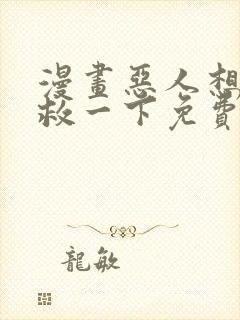 漫畫惡人想
救一下免費
龍敏